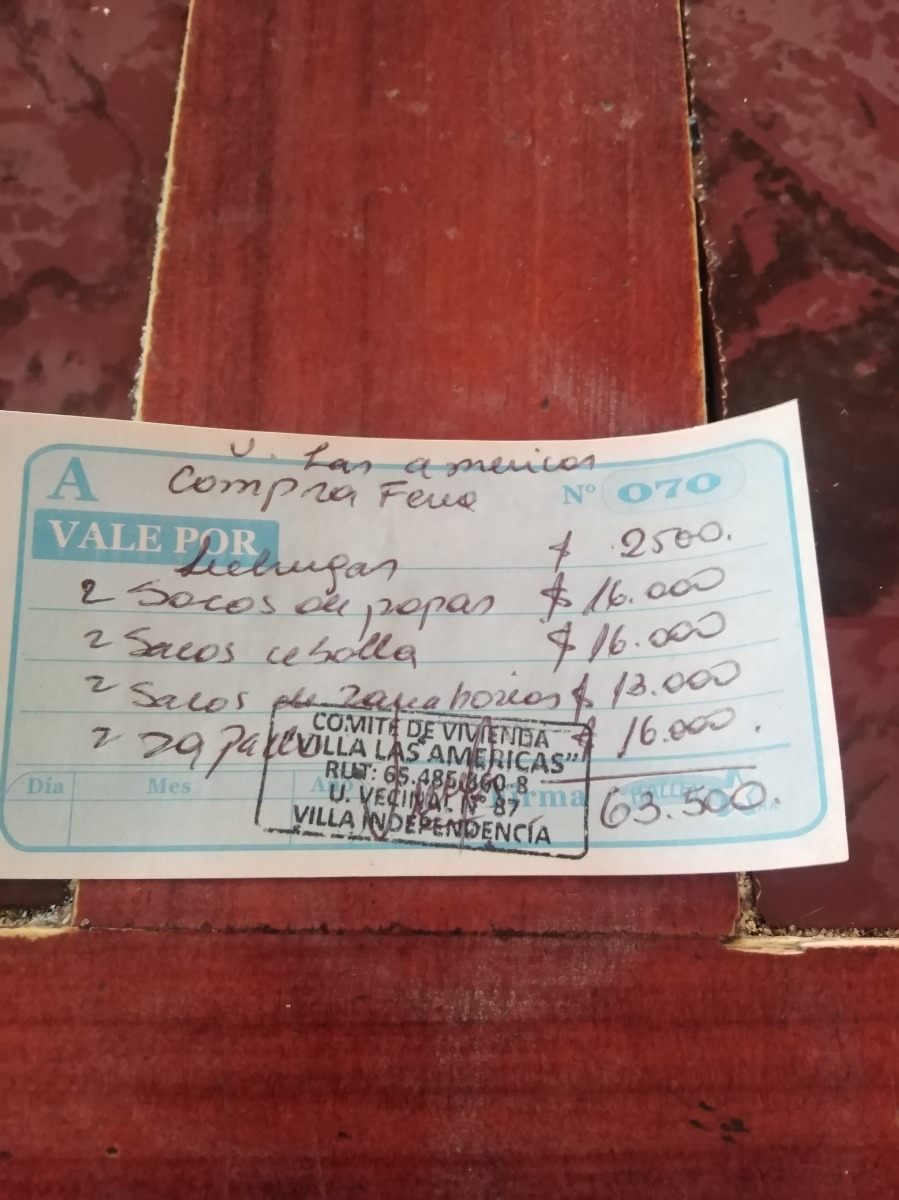 V. Las americas
A Compra Feria Nº 070
VALE POR
Lechugas $ 2500.
2 Sacos de papas $ 16.000
2 Sacos cebolla $ 16.000
2 Sacos de zanahorias $ 13.000
2 zapall $ 16.000.
COMITE DE VIVIENDA
"VILLA LAS AMERICAS"
RUT: 65.486.860-8
U. VECINAL Nº 87
VILLA INDEPENDENCIA
Día Mes Año Firma
63.500.